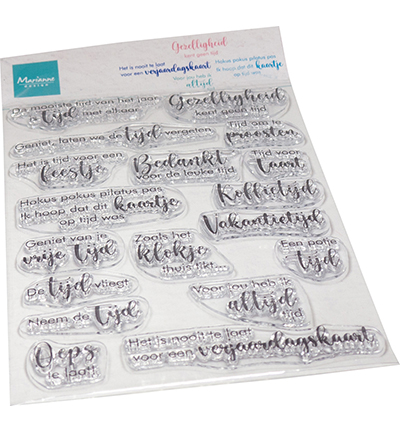 Marianne
DESIGN
Gezelligheid
kent geen tijd
Het is nooit te laat
voor een verjaardagskaart
Voor jou heb ik
altijd
Hokus pokus pilatus pas
Ik hoop dat dit kaartje
op tijd was
De mooiste tijd van het jaar
tijd met elkaar
Gezelligheid
kent geen tijd
Geniet, laten we de tijd vergeten
Tijd om te
proosten
Het is tijd voor een
feestje
Bedankt
voor de leuke tijd
Tijd voor
taart
Hokus pokus pilatus pas
Ik hoop dat dit kaartje
op tijd was
Koffietijd
Vakantietijd
Geniet van je
vrije tijd
Zoals het
klokje
thuis tikt...
Een potje
tijd
De tijd vliegt
Voor jou heb ik
altijd
tijd
Neem de tijd
Oeps
te laat!
Het is nooit te laat
voor een verjaardagskaart